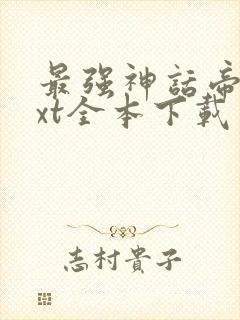 最强神話帝
xt全本下載
志村貴子